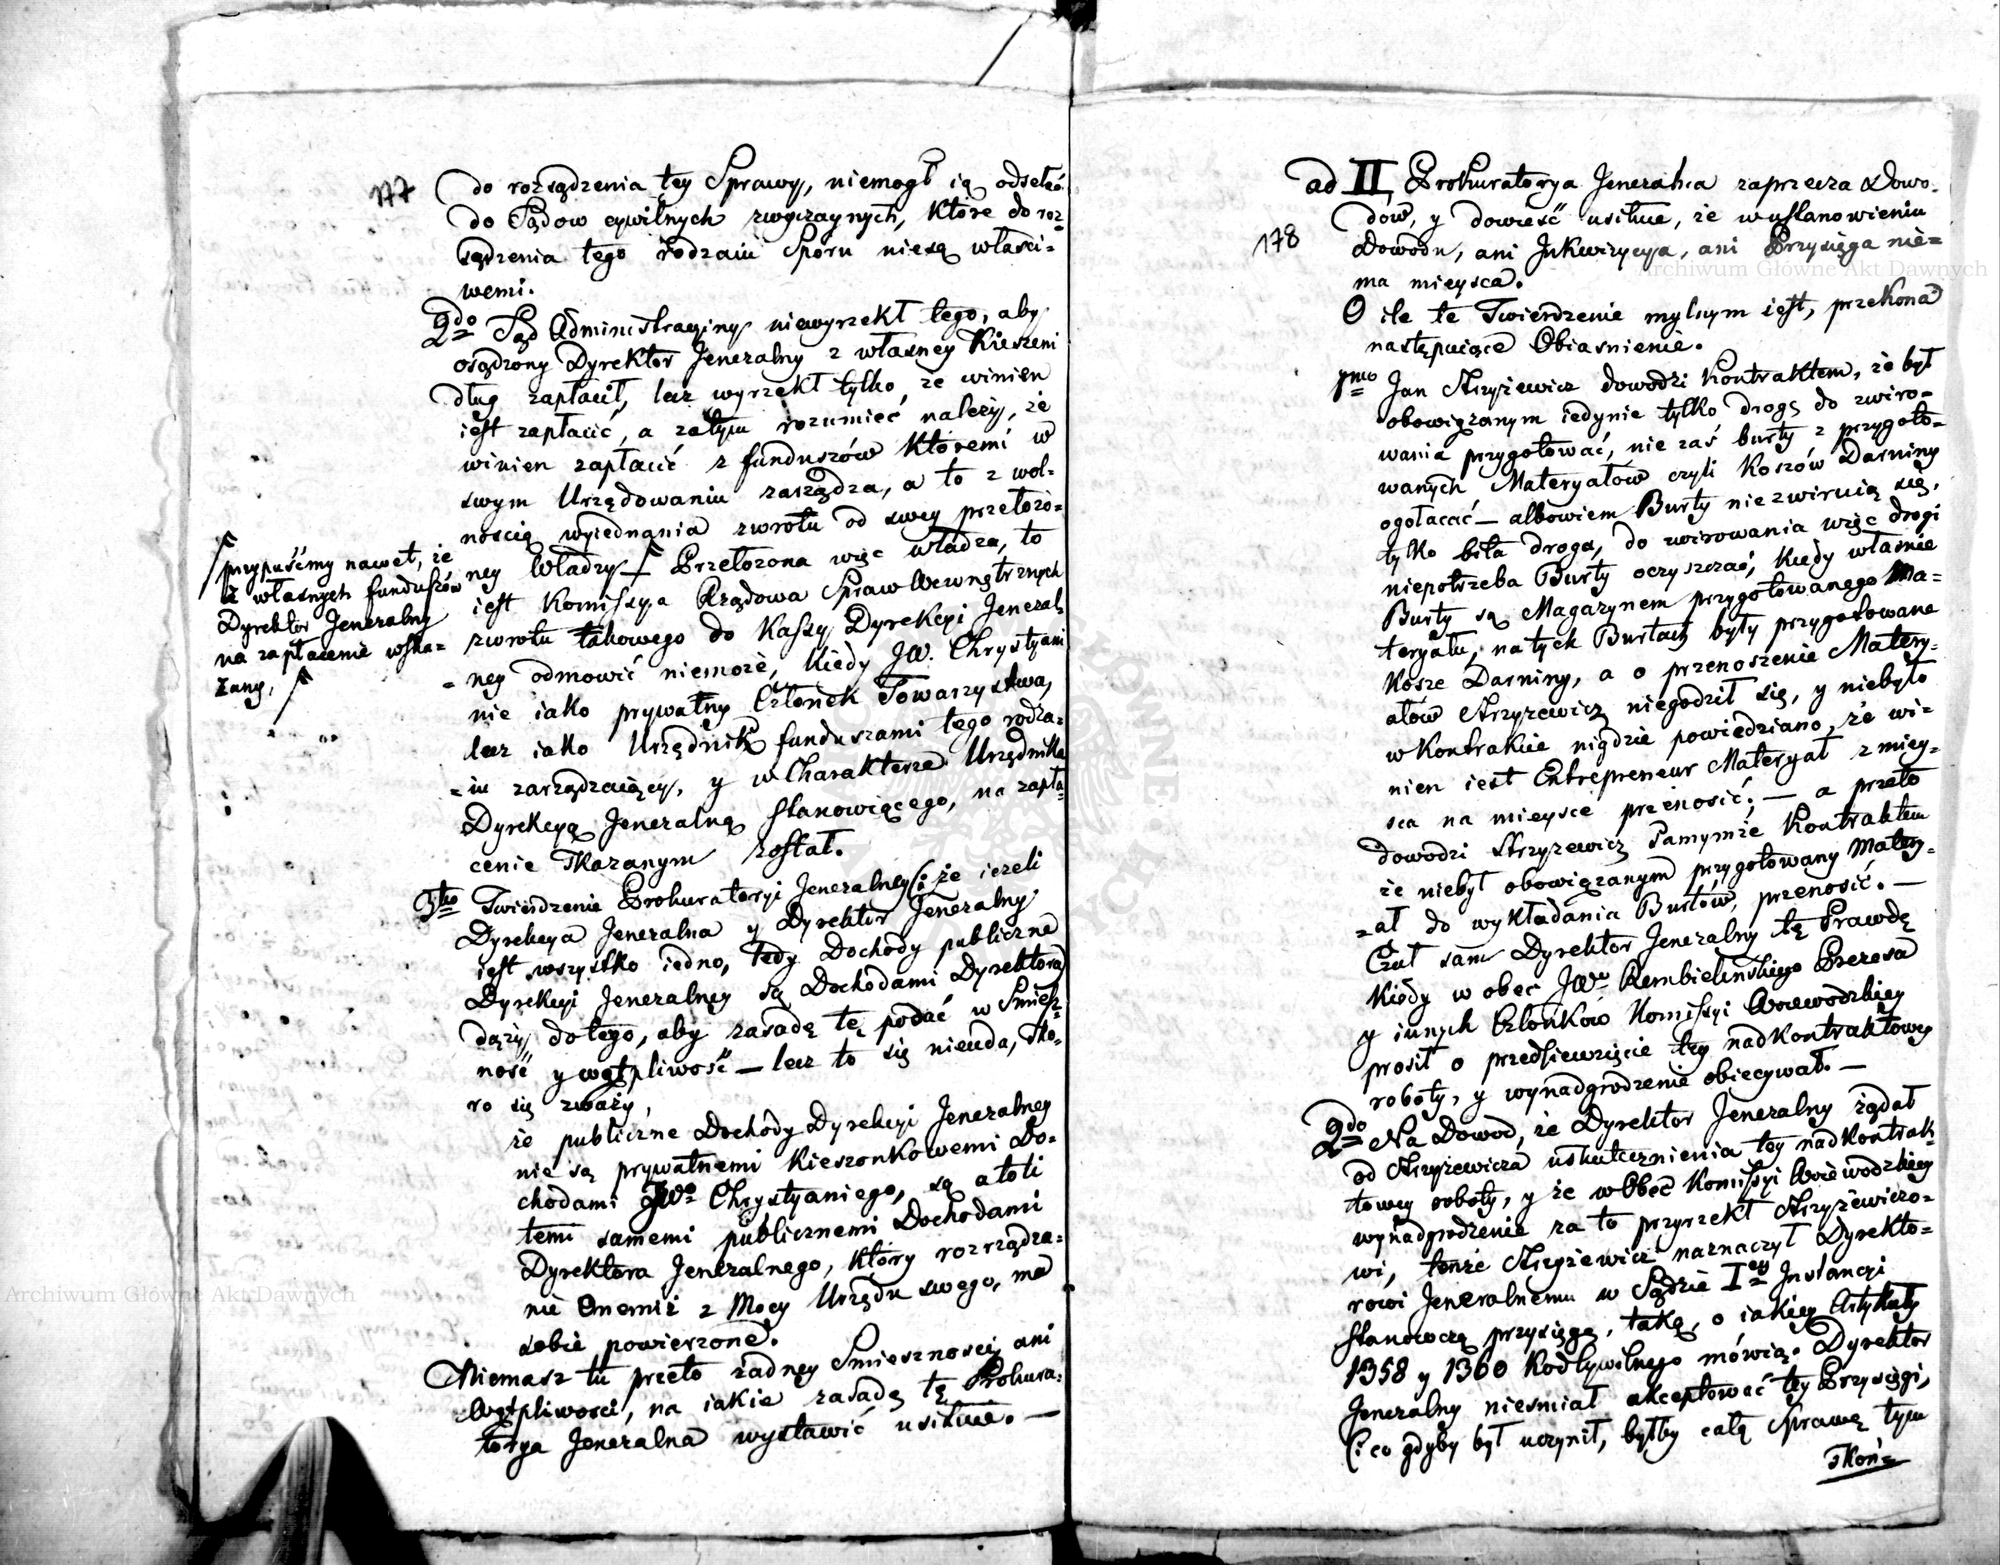 177
do rozsądzenia tey Sprawy, niemogł ią odsełać
do Sądow cywilnych zwyczaynych, które do roz=
sądzenia tego rodzaiu Sporu niesą właści=
wemi.
2do Sąd Administracyiny niewyrzekł tego, aby
osądzony Dyrektor Jeneralny z własney Kieszeni
dług zapłacił, lecz wyrzekł tylko, że winien
iest zapłacić, a zatym rozumieć należy, że
winien zapłacić z funduszów któremi w
swym Urzędowaniu zarządza, a to z wol=
nością wyiednania zwrotu od swey przełożo=
ney Władzy Przełożona więc władza, to
iest Kommissya Rządowa Spraw Wewnętrznych
zwrotu takowego do Kassy Dyrekcyi Jeneral=
=ney odmówić niemoże, kiedy JW. Chrystyani
nie iako prywatny Członek Towarzystwa,
lecz iako Urzędnik funduszami tego rodza=
=iu zarządzaiący, y w Charakterze Urzędnika
Dyrekcyą Jeneralną stanowiącego, na zapła=
cenie skazanym został.
przypuśćmy nawet, że
z własnych funduszów
Dyrektor Jeneralny
na zapłacenie wska=
zany,
3tio Twierdzenie Prokuratoryi Jeneralney (: że ieżeli
Dyrekcya Jeneralna y Dyrektor Jeneralny
iest wszystko iedno, tedy Dochody publiczne
Dyrekcyi Jeneralney są Dochodami Dyrektora
dąży do tego, aby zasadę tę podać w Śmiesz=
ność y wątpliwość — lecz to się nieuda, sko=
ro się zważy,
że publiczne Dochody Dyrekcyi Jeneralney
nie są prywatnemi kieszonkowemi Do=
chodami JWo Chrystyaniego, są atoli
temi samemi publicznemi Dochodami
Dyrektora Jeneralnego, który rozrządza=
nie onemiż z Mocy Urzędu swego, ma
sobie powierzone.
Niemasz tu przeto żadney Śmieszności, ani
Wątpliwości, na iakie zasadę tę Prokura=
torya Jeneralna wystawić usiłuie. —
ad II Prokuratorya Jeneralna zaprzecza Dowo=
dow, y dowieść usiłuie, że w ustanowieniu
178
Dowodu, ani Inkwizycya, ani Przysięga nie=
ma mieysca.
O ile te Twierdzenie mylnym iest, przekona
następuiące Obiasnienie.
1mo Jan Strzyżewicz dowodzi Kontraktem, że był
obowiązanym iedynie tylko drogę do zwiro=
wania przygotować, nie zaś burty z przygoto=
wanych Materyałów czyli Koszów Darniny
ogołacać — albowiem Burty niezwiruią się,
tylko bita droga, do zwirowania więc drogi
niepotrzeba Burty oczyszczać, kiedy własnie
Burty są Magazynem przygotowanego Ma=
teryału, na tych Burtach były przygotowane
Kosze Darniny, a o przenoszenie Matery=
ałów Strzyżewicz niegodził się, y niebyło
w Kontrakcie nigdzie powiedziano, że wi=
nien iest Entrepreneur Materyał z miey=
sca na mieysce przenosić; — a przeto
dowodzi Strzyżewicz samymże Kontraktem
że niebył obowiązanym przygotowany Matery=
=ał do wykładania Burtów, przenosić. —
Czuł sam Dyrektor Jeneralny tę Prawdę
kiedy w obec JWo Rembielińskiego Prezesa
y innych Członków Komissyi Woiewodzkiey
prosił o przedsiewzięcie tey nadkontraktowey
roboty, y wynadgrodzenie obiecywał. —
2do Na Dowod, że Dyrektor Jeneralny żądał
od Strzyżewicza uskutecznienia tey nadkontrak=
towey roboty, y że w Obec Komissyi Woiewodzkiey
wynadgrodzenie za to przyrzekł Strzyżewiczo=
wi, tenże Strzyżewicz naznaczył Dyrekto=
rowi Jeneralnemu w Sądzie Iey Instancyi
stanowczą przysięgę, taką, o iakiey Artykuły
1358 y 1360 Kod: Cywilnego mówią. Dyrektor
Jeneralny niesmiał akceptować tey Przysięgi,
(: co gdyby był uczynił, byłby całą Sprawę tym
skoń=